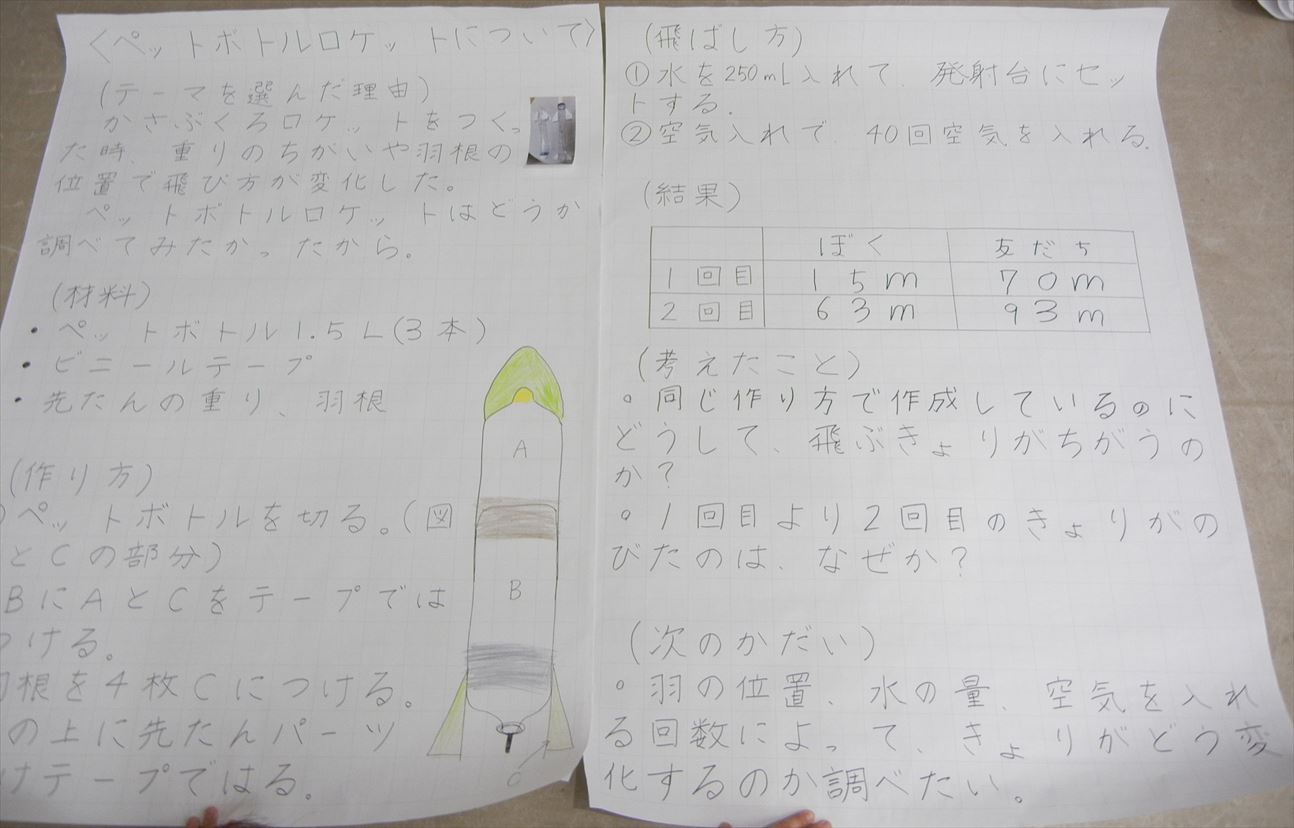 〈ペットボトルロケットについて〉
(テーマを選んだ理由)
かさぶくろロケットをつくっ
た時、重りのちがいや羽根の
位置で飛び方が変化した。
ペットボトルロケットはどうか
調べてみたかったから。
(材料)
・ペットボトル1.5L(3本)
・ビニールテープ
・先たんの重り、羽根
(作り方)
ペットボトルを切る。(図
とCの部分)
BにAとCをテープでは
つける。
根を4枚Cにつける。
の上に先たんパーツ
けテープではる。
A
B
C
(飛ばし方)
①水を250mL入れて、発射台にセッ
トする.
②空気入れで、40回空気を入れる.
(結果)
ぼく 友だち
1回目 15m 70m
2回目 63m 93m
(考えたこと)
。同じ作り方で作成しているのに
どうして、飛ぶきょりがちがうの
か?
。1回目より2回目のきょりがの
びたのは、なぜか?
(次のかだい)
。羽の位置、水の量、空気を入れ
る回数によって、きょりがどう変
化するのか調べたい。